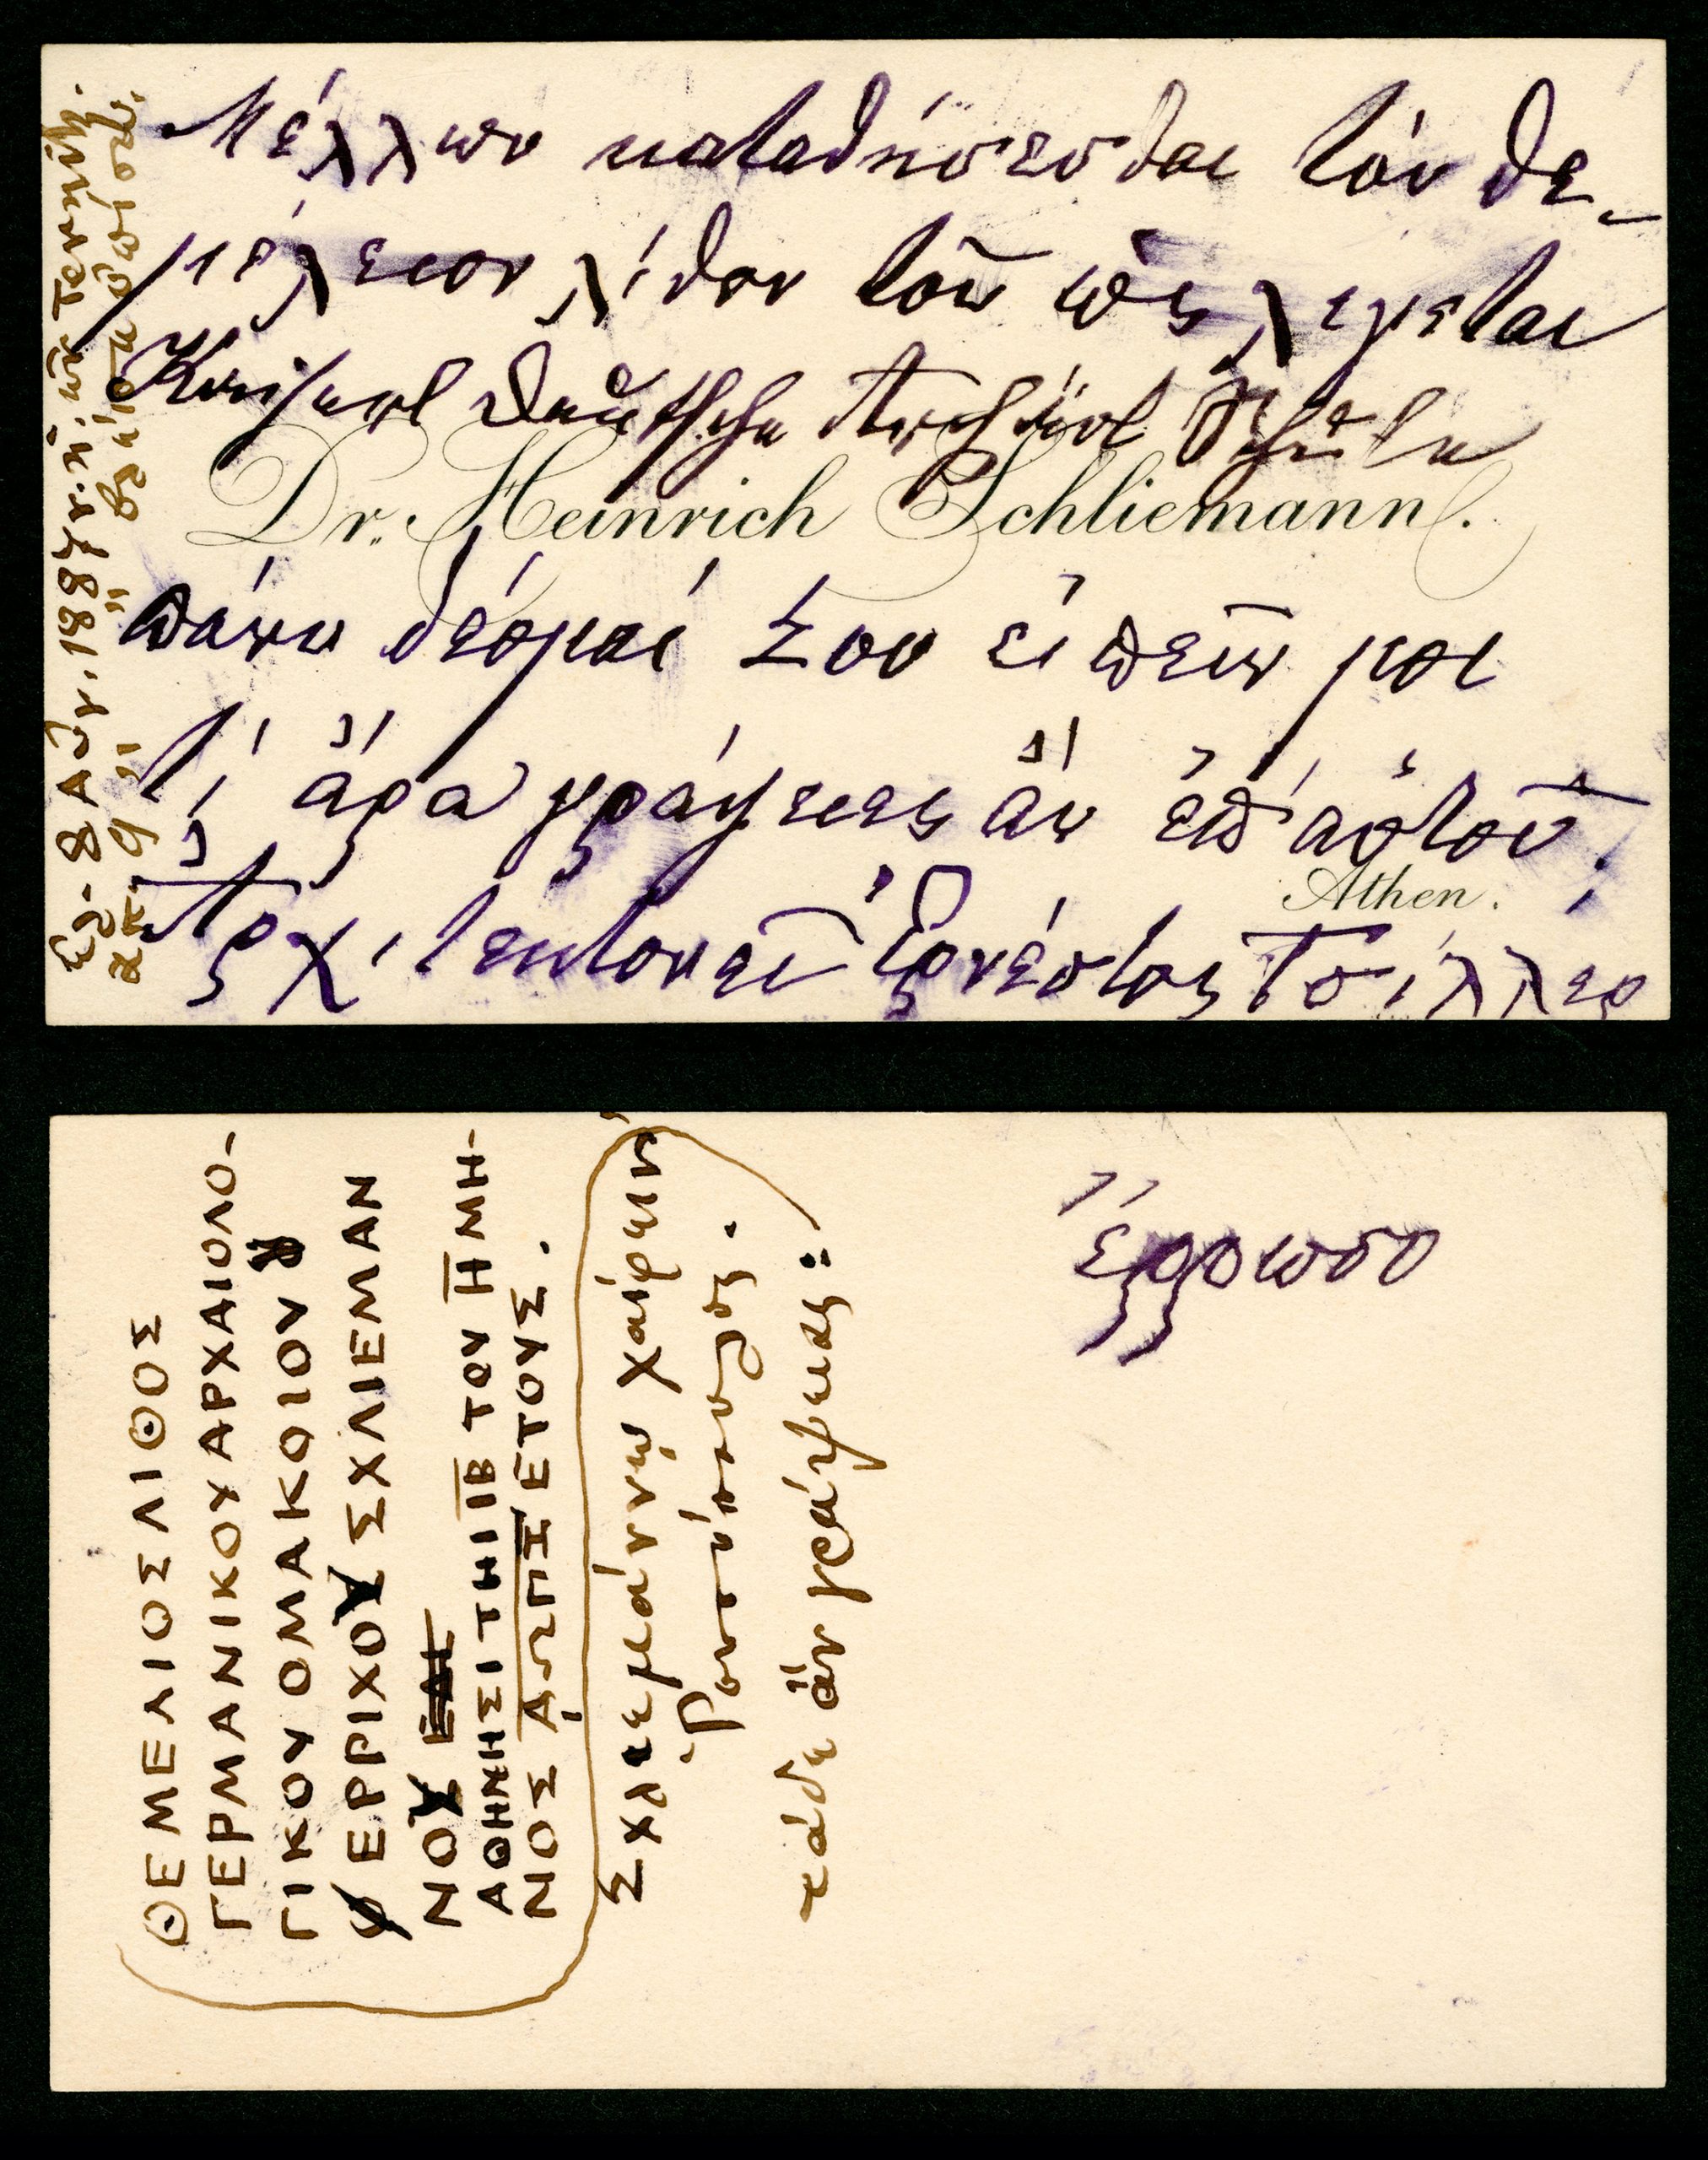 Μέλλων καταθήσεσθαι τὸν θε-
μέλειον λίθον τοῦ ὡς λεγεται
Kaiserl Deutsche Archäol Schule
Dr. Heinrich Schliemann.
πάνυ δέομαί Σου εἰπεῖν μοι
τί ἄρα γράψειες ἂν ἐπ' αὐτοῦ;
Athen.
Ἀρχιτεκτονεῖ Ἐρνέστος Τσίλλερ
ἔρρωσο
ΘΕΜΕΛΙΟΣ ΛΙΘΟΣ
ΓΕΡΜΑΝΙΚΟΥ ΑΡΧΑΙΟΛΟ-
ΓΙΚΟΥ ΟΜΑΚΟΙΟΥ
ΕΡΡΙΧΟΥ ΣΧΛΙΕΜΑΝ
ΝΟΥ
ΑΘΗΝΗΣΙ ΤΗΙ ΙΒ ΤΟΥ Η ΜΗ-
ΝΟΣ ͵ΑΩΠΖ ΕΤΟΥΣ.
Σχλιεμάννῳ χαίρειν
Ῥουσόπουλος.
τάδε ἂν γράψειας: